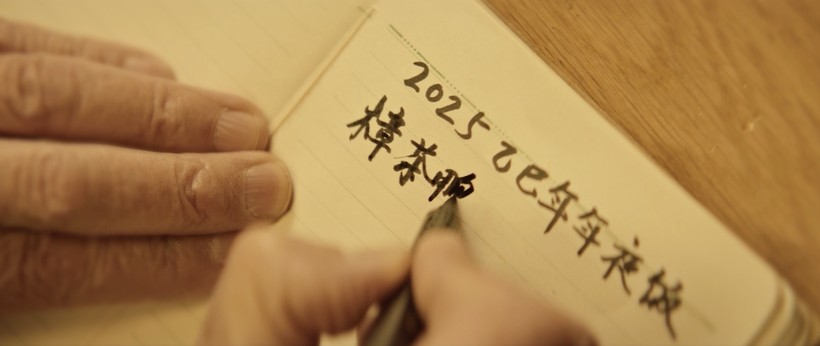 2025 乙巳年年夜做
樟茶鸭